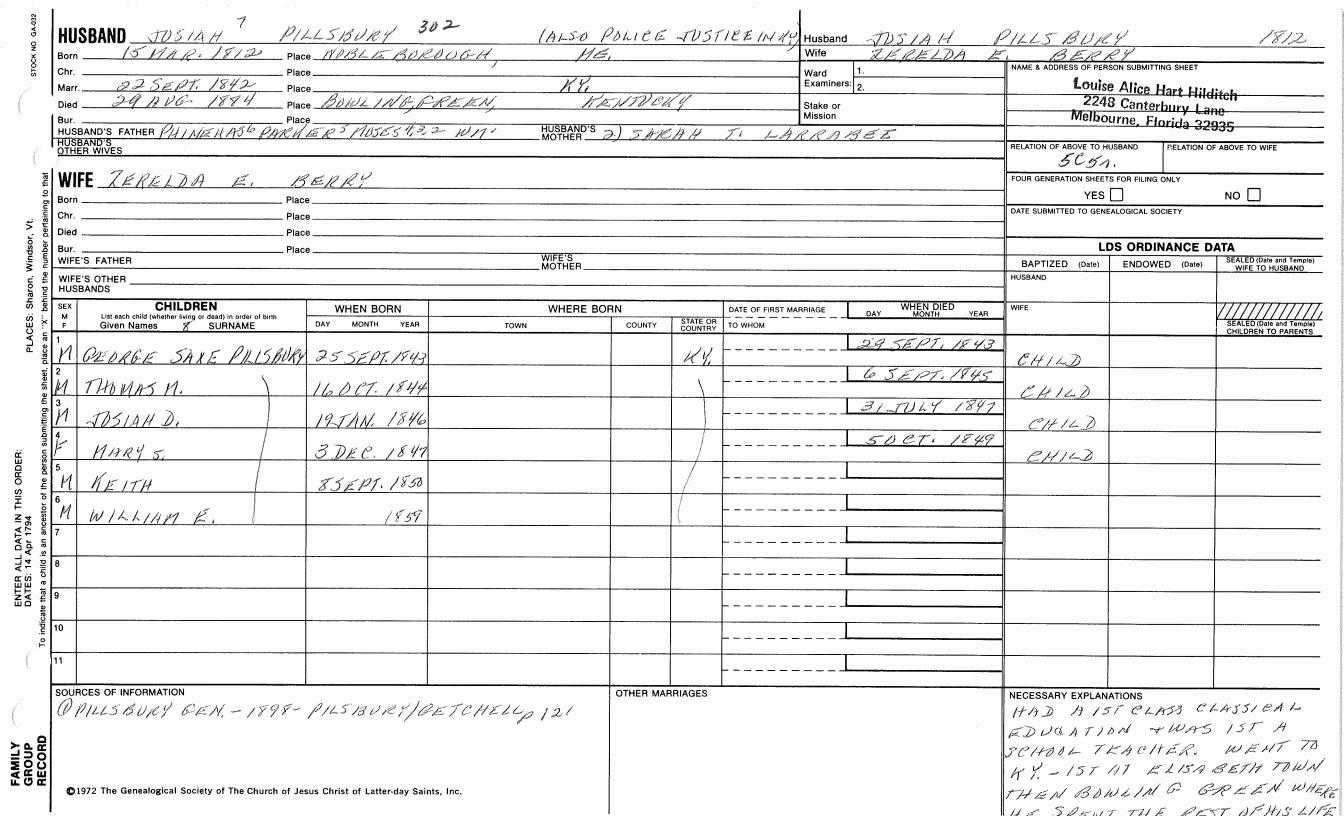 STOCK NO GA-032
HUSBAND JOSIAH 7 PILLSBURY 302 (ALSO POLICE JUSTICE IN KY)
Born 15 MAR. 1812 Place NOBLEBOROUGH, ME.
Chr. Place
Marr. 22 SEPT. 1842 Place KY.
Died 29 AUG. 1884 Place BOWLING, GREEN, KENTUCKY
Bur. Place
HUSBAND'S FATHER PHINEHAS6 PARKER5 MOSES4,3,2 WM. HUSBAND'S MOTHER 2) SARAH J. LARRABEE
HUSBAND'S OTHER WIVES
Husband JOSIAH PILLSBURY 1812
Wife ZERELDA E. BERRY
Ward Examiners: 1.
2.
Stake or Mission
NAME & ADDRESS OF PERSON SUBMITTING SHEET
Louise Alice Hart Hilditch
2248 Canterbury Lane
Melbourne, Florida 32935
RELATION OF ABOVE TO HUSBAND RELATION OF ABOVE TO WIFE
5C5r.
FOUR GENERATION SHEETS FOR FILING ONLY
YES NO
DATE SUBMITTED TO GENEALOGICAL SOCIETY
WIFE ZERELDA E. BERRY
Born Place
Chr. Place
Died Place
Bur. Place
WIFE'S FATHER WIFE'S MOTHER
WIFE'S OTHER HUSBANDS
LDS ORDINANCE DATA
BAPTIZED (Date) ENDOWED (Date) SEALED (Date and Temple) WIFE TO HUSBAND
HUSBAND
WIFE
SEALED (Date and Temple) CHILDREN TO PARENTS
SEX M F CHILDREN WHEN BORN WHERE BORN DATE OF FIRST MARRIAGE WHEN DIED
List each child (whether living or dead) in order of birth
Given Names 8 SURNAME DAY MONTH YEAR TOWN COUNTY STATE OR COUNTRY TO WHOM DAY MONTH YEAR
1 M GEORGE SAXE PILLSBURY 25 SEPT. 1843 KY. 29 SEPT. 1843 CHILD
2 M THOMAS M. 16 OCT. 1844 6 SEPT. 1845 CHILD
3 M JOSIAH D. 19 JAN. 1846 31 JULY 1847 CHILD
4 F MARY S. 3 DEC. 1847 5 OCT. 1849 CHILD
5 M KEITH 8 SEPT. 1850
6 M WILLIAM E. 1859
7
8
9
10
11
SOURCES OF INFORMATION
① PILLSBURY GEN. - 1898 - PILSBURY/GETCHELL p 121
OTHER MARRIAGES
NECESSARY EXPLANATIONS
HAD A 1ST CLASS CLASSICAL
EDUCATION + WAS 1ST A
SCHOOL TEACHER. WENT TO
KY. - 1ST AT ELISABETH TOWN
THEN BOWLING GREEN WHERE
HE SPENT THE REST OF HIS LIFE
©1972 The Genealogical Society of The Church of Jesus Christ of Latter-day Saints, Inc.
FAMILY GROUP RECORD
ENTER ALL DATA IN THIS ORDER:
DATES: 14 Apr 1794
PLACES: Sharon, Windsor, Vt.
To indicate that a child is an ancestor of the person submitting the sheet, place an "X" behind the number pertaining to that